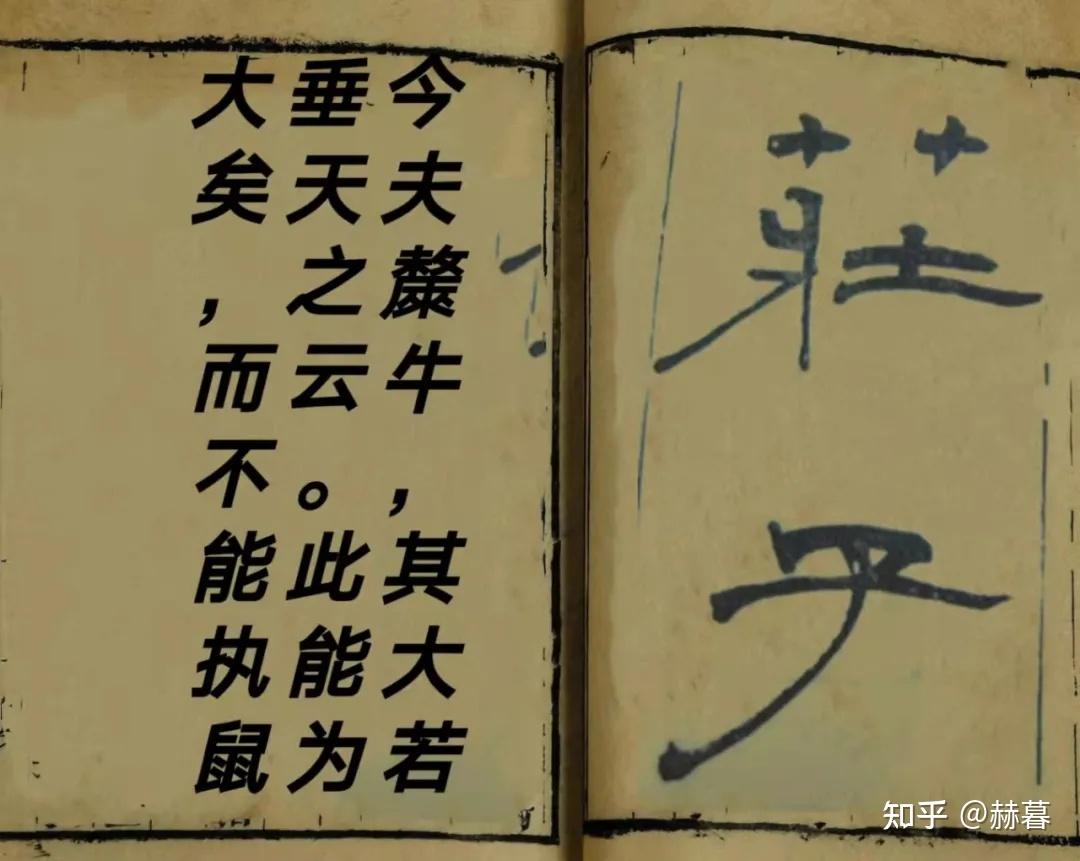 莊子
今夫斄牛，其大若
垂天之云。此能为
大矣，而不能执鼠
知乎 @赫暮